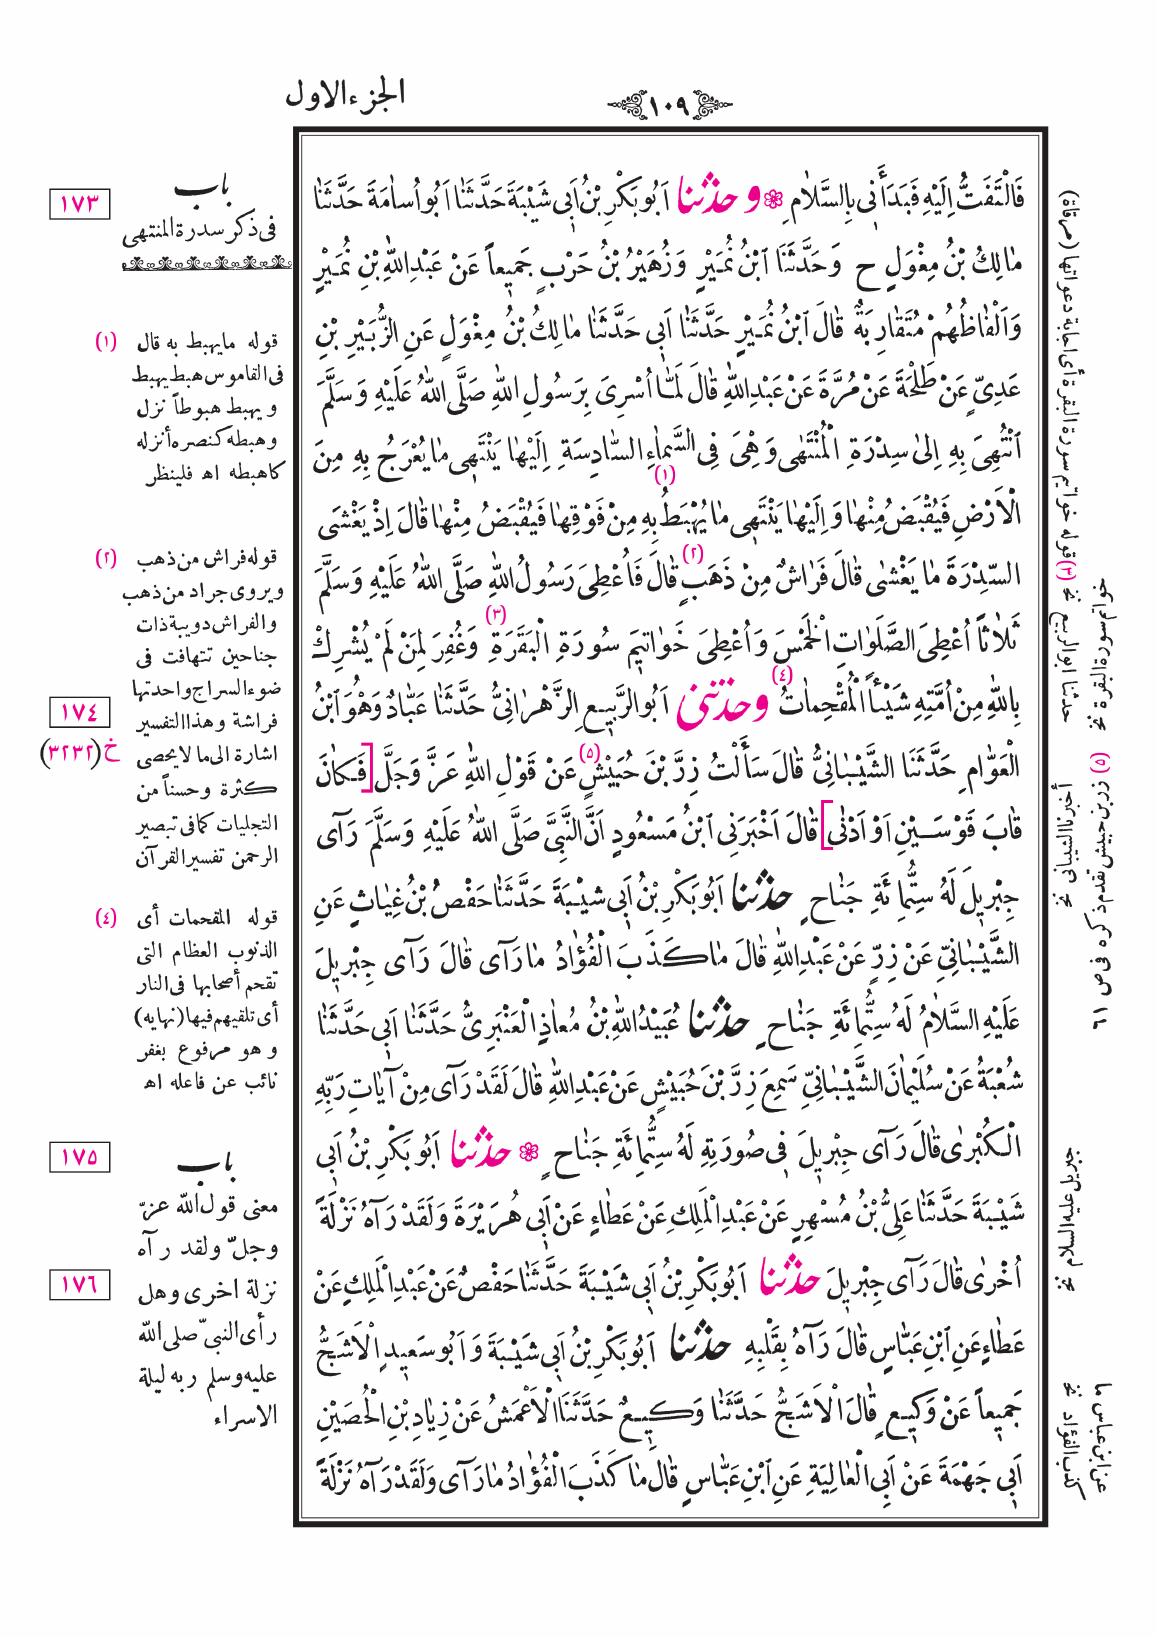 ١٠٩
الجزء الاول
فَالْتَفَتُّ اِلَيْهِ فَبَدَأَنِى بِالسَّلَامِ ۞ وحدثنا اَبُو بَكْرِ بْنُ اَبِى شَيْبَةَ حَدَّثَنَا اَبُو اُسَامَةَ حَدَّثَنَا
مَالِكُ بْنُ مِغْوَلٍ ح وَحَدَّثَنَا ابْنُ نُمَيْرٍ وَزُهَيْرُ بْنُ حَرْبٍ جَمِيعاً عَنْ عَبْدِاللهِ بْنِ نُمَيْرٍ
وَاَلْفَاظُهُمْ مُتَقَارِبَةٌ قَالَ ابْنُ نُمَيْرٍ حَدَّثَنَا اَبِى حَدَّثَنَا مَالِكُ بْنُ مِغْوَلٍ عَنِ الزُّبَيْرِ بْنِ
عَدِىٍّ عَنْ طَلْحَةَ عَنْ مُرَّةَ عَنْ عَبْدِاللهِ قَالَ لَمَّا اُسْرِىَ بِرَسُولِ اللهِ صَلَّى اللهُ عَلَيْهِ وَسَلَّمَ
اَنْتُهِىَ بِهِ اِلىٰ سِدْرَةِ الْمُنْتَهٰى وَهِىَ فِى السَّمَاءِ السَّادِسَةِ اِلَيْهَا يَنْتَهِى مَا يُعْرَجُ بِهِ مِنَ
الْاَرْضِ فَيُقْبَضُ مِنْهَا وَاِلَيْهَا يَنْتَهِى مَا يُهْبَطُ (١) بِهِ مِنْ فَوْقِهَا فَيُقْبَضُ مِنْهَا قَالَ اِذْ يَغْشَى
السِّدْرَةَ مَا يَغْشٰى قَالَ فَرَاشٌ مِنْ ذَهَبٍ (٢) قَالَ فَاُعْطِىَ رَسُولُ اللهِ صَلَّى اللهُ عَلَيْهِ وَسَلَّمَ
ثَلَاثاً اُعْطِىَ الصَّلَوَاتِ الْخَمْسَ وَاُعْطِىَ خَوَاتِيمَ سُورَةِ الْبَقَرَةِ (٣) وَغُفِرَ لِمَنْ لَمْ يُشْرِكْ
بِاللهِ مِنْ اُمَّتِهِ شَيْئاً الْمُقْحِمَاتُ (٤) وحدثنى اَبُو الرَّبِيعِ الزَّهْرَانِىُّ حَدَّثَنَا عَبَّادٌ وَهُوَ ابْنُ
الْعَوَّامِ حَدَّثَنَا الشَّيْبَانِىُّ قَالَ سَأَلْتُ زِرَّ بْنَ حُبَيْشٍ (٥) عَنْ قَوْلِ اللهِ عَزَّ وَجَلَّ [فَكَانَ
قَابَ قَوْسَيْنِ اَوْ اَدْنٰى] قَالَ اَخْبَرَنِى ابْنُ مَسْعُودٍ اَنَّ النَّبِىَّ صَلَّى اللهُ عَلَيْهِ وَسَلَّمَ رَآى
جِبْرِيلَ لَهُ سِتُّمِائَةِ جَنَاحٍ حدثنا اَبُو بَكْرِ بْنُ اَبِى شَيْبَةَ حَدَّثَنَا حَفْصُ بْنُ غِيَاثٍ عَنِ
الشَّيْبَانِىِّ عَنْ زِرٍّ عَنْ عَبْدِاللهِ قَالَ مَا كَذَبَ الْفُؤَادُ مَا رَآى قَالَ رَآى جِبْرِيلَ
عَلَيْهِ السَّلَامُ لَهُ سِتُّمِائَةِ جَنَاحٍ حدثنا عُبَيْدُاللهِ بْنُ مُعَاذٍ الْعَنْبَرِىُّ حَدَّثَنَا اَبِى حَدَّثَنَا
شُعْبَةُ عَنْ سُلَيْمَانَ الشَّيْبَانِىِّ سَمِعَ زِرَّ بْنَ حُبَيْشٍ عَنْ عَبْدِاللهِ قَالَ لَقَدْ رَآى مِنْ آيَاتِ رَبِّهِ
الْكُبْرٰى قَالَ رَآى جِبْرِيلَ فِى صُورَتِهِ لَهُ سِتُّمِائَةِ جَنَاحٍ ۞ حدثنا اَبُو بَكْرِ بْنُ اَبِى
شَيْبَةَ حَدَّثَنَا عَلِىُّ بْنُ مُسْهِرٍ عَنْ عَبْدِ الْمَلِكِ عَنْ عَطَاءٍ عَنْ اَبِى هُرَيْرَةَ وَلَقَدْ رَآهُ نَزْلَةً
اُخْرٰى قَالَ رَآى جِبْرِيلَ حدثنا اَبُو بَكْرِ بْنُ اَبِى شَيْبَةَ حَدَّثَنَا حَفْصٌ عَنْ عَبْدِ الْمَلِكِ عَنْ
عَطَاءٍ عَنِ ابْنِ عَبَّاسٍ قَالَ رَآهُ بِقَلْبِهِ حدثنا اَبُو بَكْرِ بْنُ اَبِى شَيْبَةَ وَاَبُو سَعِيدٍ الْاَشَجُّ
جَمِيعاً عَنْ وَكِيعٍ قَالَ الْاَشَجُّ حَدَّثَنَا وَكِيعٌ حَدَّثَنَا الْاَعْمَشُ عَنْ زِيَادِ بْنِ الْحُصَيْنِ
اَبِى جَهْمَةَ عَنْ اَبِى الْعَالِيَةِ عَنِ ابْنِ عَبَّاسٍ قَالَ مَا كَذَبَ الْفُؤَادُ مَا رَآى وَلَقَدْ رَآهُ نَزْلَةً
باب
١٧٣
فى ذكر سدرة المنتهى
(١) قوله مايهبط به قال
فى القاموس هبط يهبط
ويهبط هبوطاً نزل
وهبطه كنصره أنزله
كاهبطه اه فلينظر
(٢) قوله فراش من ذهب
ويروى جراد من ذهب
والفراش دويبة ذات
جناحين تتهافت فى
ضوء السراج واحدتها
١٧٤
فراشة وهذا التفسير
خ (٣٢٣٢)
اشارة الى ما لايحصى
كثرة وحسناً من
التجليات كما فى تبصير
الرحمن تفسير القرآن
(٤) قوله المقحمات أى
الذنوب العظام التى
تقحم أصحابها فى النار
أى تلقيهم فيها (نهايه)
وهو مرفوع بغفر
نائب عن فاعله اه
١٧٥
باب
معنى قول الله عزّ
وجلّ ولقد رآه
١٧٦
نزلة اخرى وهل
رأى النبىّ صلى الله
عليه وسلم ربه ليلة
الاسراء
(٣) قوله خواتيم سورة البقرة أى اجابة دعواتها (مرقاة)
خواتم سورة البقرة نخ
حدثنا ابو الربيع نخ
(٥) زر بن حبيش تقدم ذكره فى ص ٦١
أخبرنا الشيبانى نخ
جبريل عليه السلام نخ
عن ابن عباس ما
كذب الفؤاد نخ